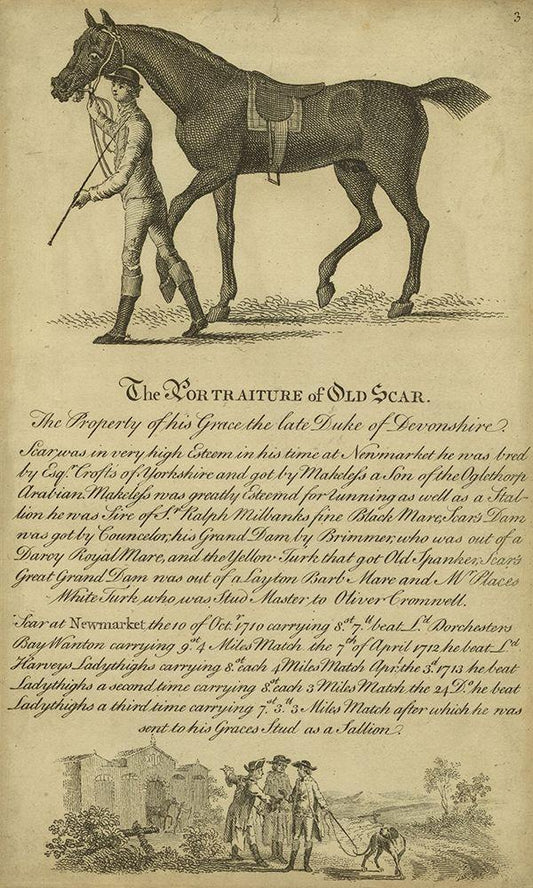 3
The PORTRAITURE of OLD SCAR.
The Property of his Grace the late Duke of Devonshire.
Scar was in very high Esteem in his time at Newmarket he was bred
by Esqr. Crofts of Yorkshire and got by Makeless a Son of the Oglethorp
Arabian. Makeless was greatly Esteemd for running as well as a Stal-
lion he was Sire of Sr. Ralph Milbanks fine Black Mare, Scar's Dam
was got by Councelor, his Grand Dam by Brimmer, who was out of a
Darcy Royal Mare, and the Yellow Turk that got Old Spanker, Scar's
Great Grand Dam was out of a Layton Barb Mare and Mr. Places
White Turk who was Stud Master to Oliver Cromwell.
Scar at Newmarket the 10 of Octr. 1710 carrying 8st 7tt beat Ld. Dorchesters
Bay Wanton carrying 9st 4 Miles Match the 7th of April 1712 he beat Ld.
Harveys Ladythighs carrying 8st each 4 Miles Match Apr. the 3d. 1713 he beat
Ladythighs a second time carrying 8st each 3 Miles Match the 24 Do. he beat
Ladythighs a third time carrying 7st 5tt 3 Miles Match after which he was
sent to his Graces Stud as a Sallion.